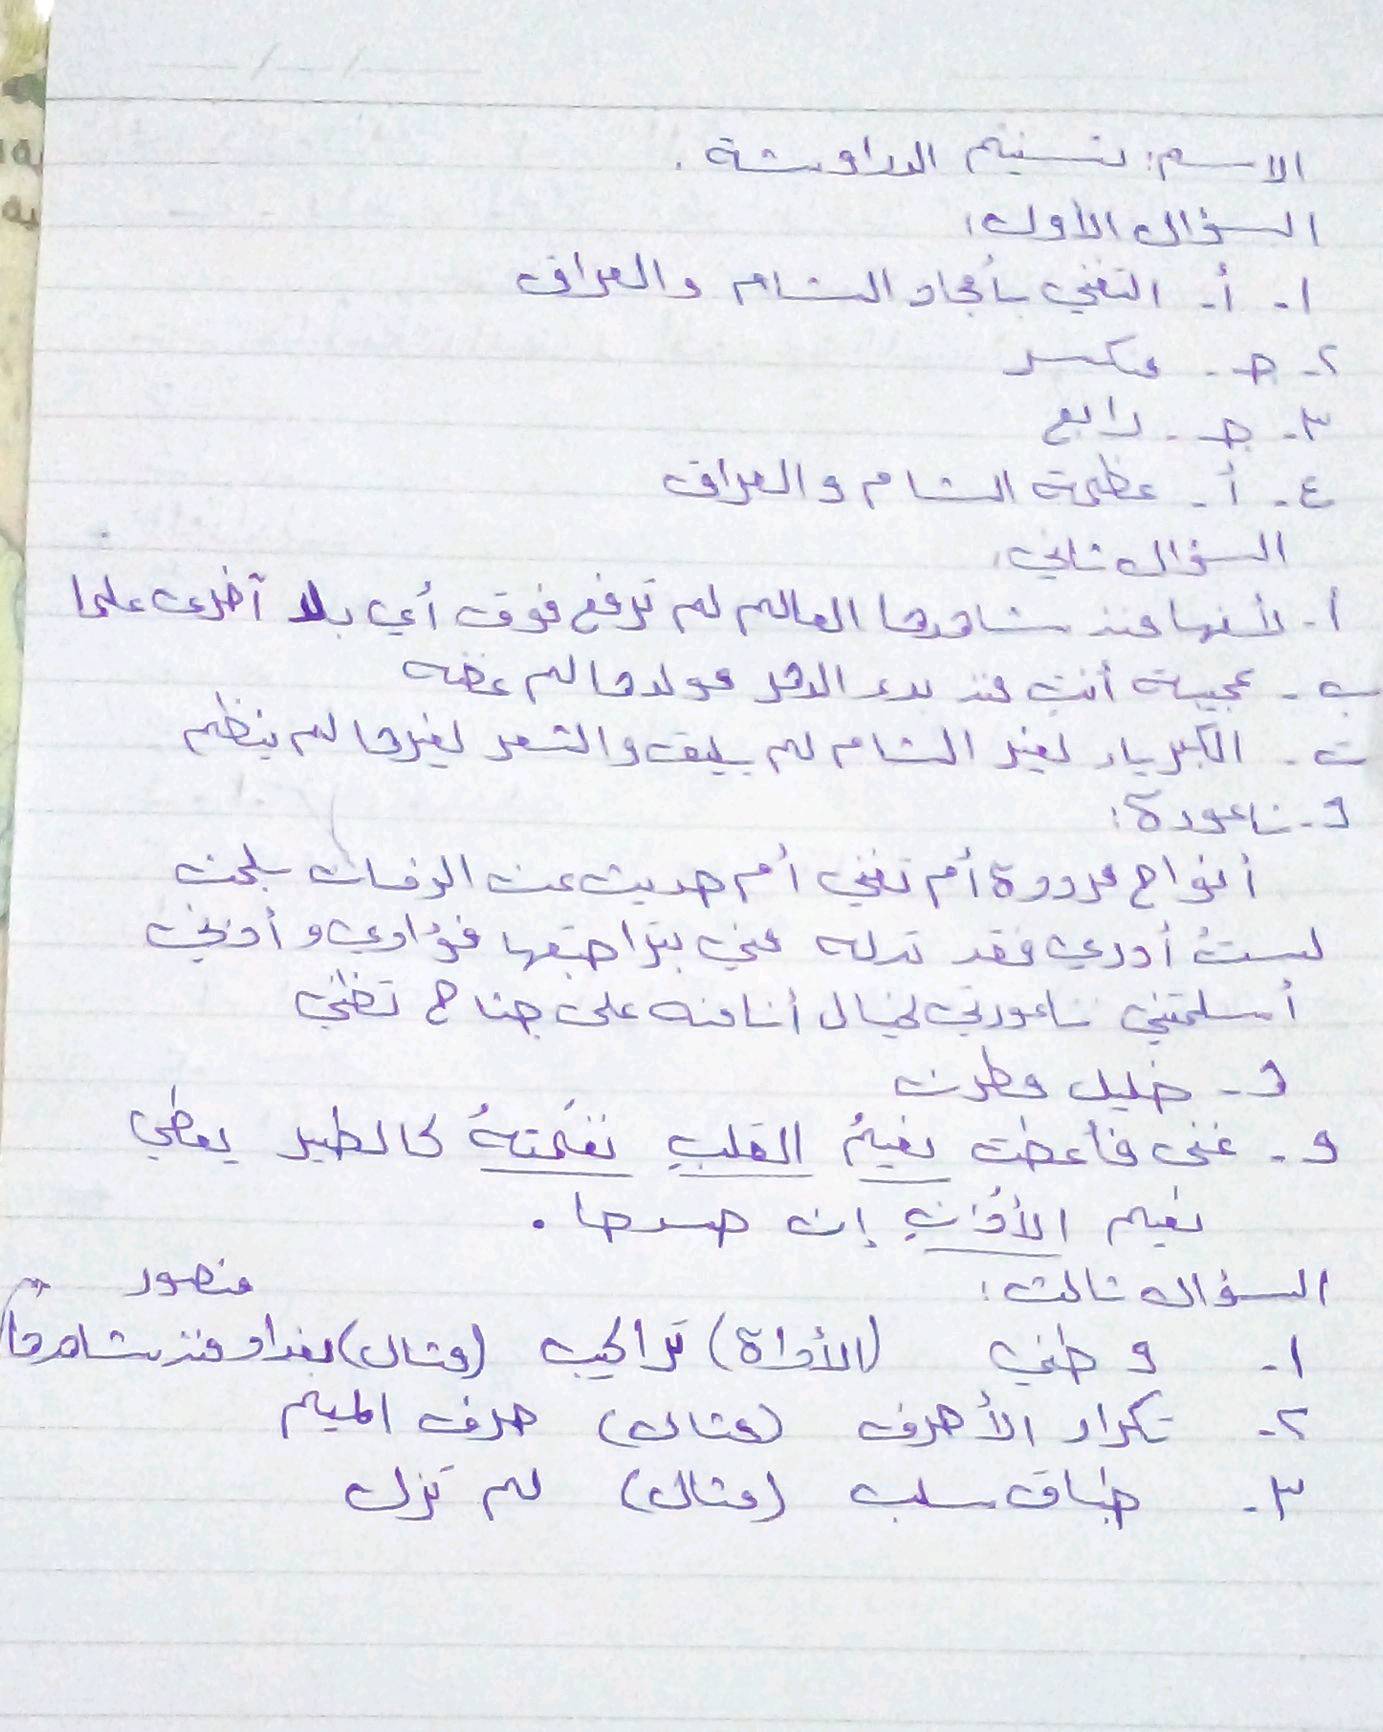 الاسم: تسنيم الدراوشة.
السؤال الأول:
١- أ- التغني بأمجاد الشام والعراق
٢- ج- مكسر
٣- ج- رابع
٤- أ- عظمة الشام والعراق
السؤال ثاني:
أ- لأنها منذ شاهدها العالم لم ترفع فوق أي بلد آخرى علما
ب- عجيبة أنتِ منذ بدء الدهر مولدها لم عضه
ت- الكبرياء لغير الشام لم يليق والشعر لغيرها لم ينظم
د- ناعورة:
أنواح مرددة أم تغني أم حديث عن الرفات بلحن
لستُ أدري فقد تدله مني بتراجيعها فؤادي وأذني
أسلمتني ناعورتي لخيال أنا منه على جناح تظني
د- خليل مطرن
و- غنى فأعضت نغيمُ القلبِ نغمتهُ كالطير يعطي
نغيم الأذنِ إن صدحا.
السؤال ثالث:
١- وطني (الأداة) تراكيب (مثال) بغداد منذ شاهدها منصور
٢- تكرار الأحرف (مثال) حرف الميم
٣- طباق سلب (مثال) لم تزل